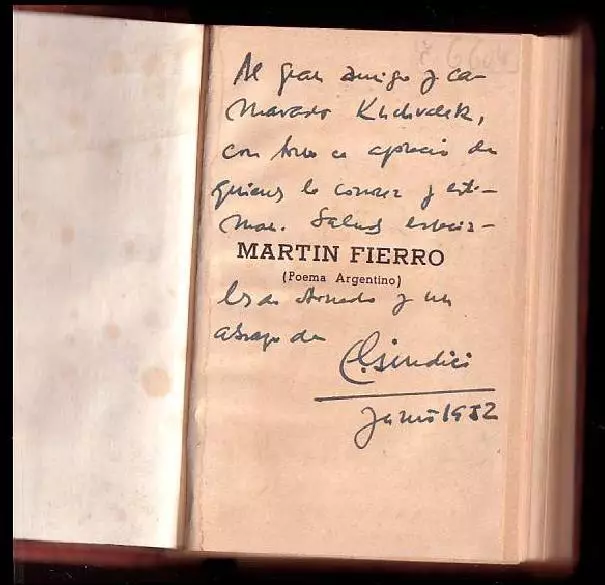 Al gran amigo y ca-
marada Kuchválek,
con todo el aprecio de
quienes lo conocen y esti-
man. Saludos especia-
MARTIN FIERRO
(Poema Argentino)
les de Arnedo y un
abrazo de
EGiudici
Junio 1952